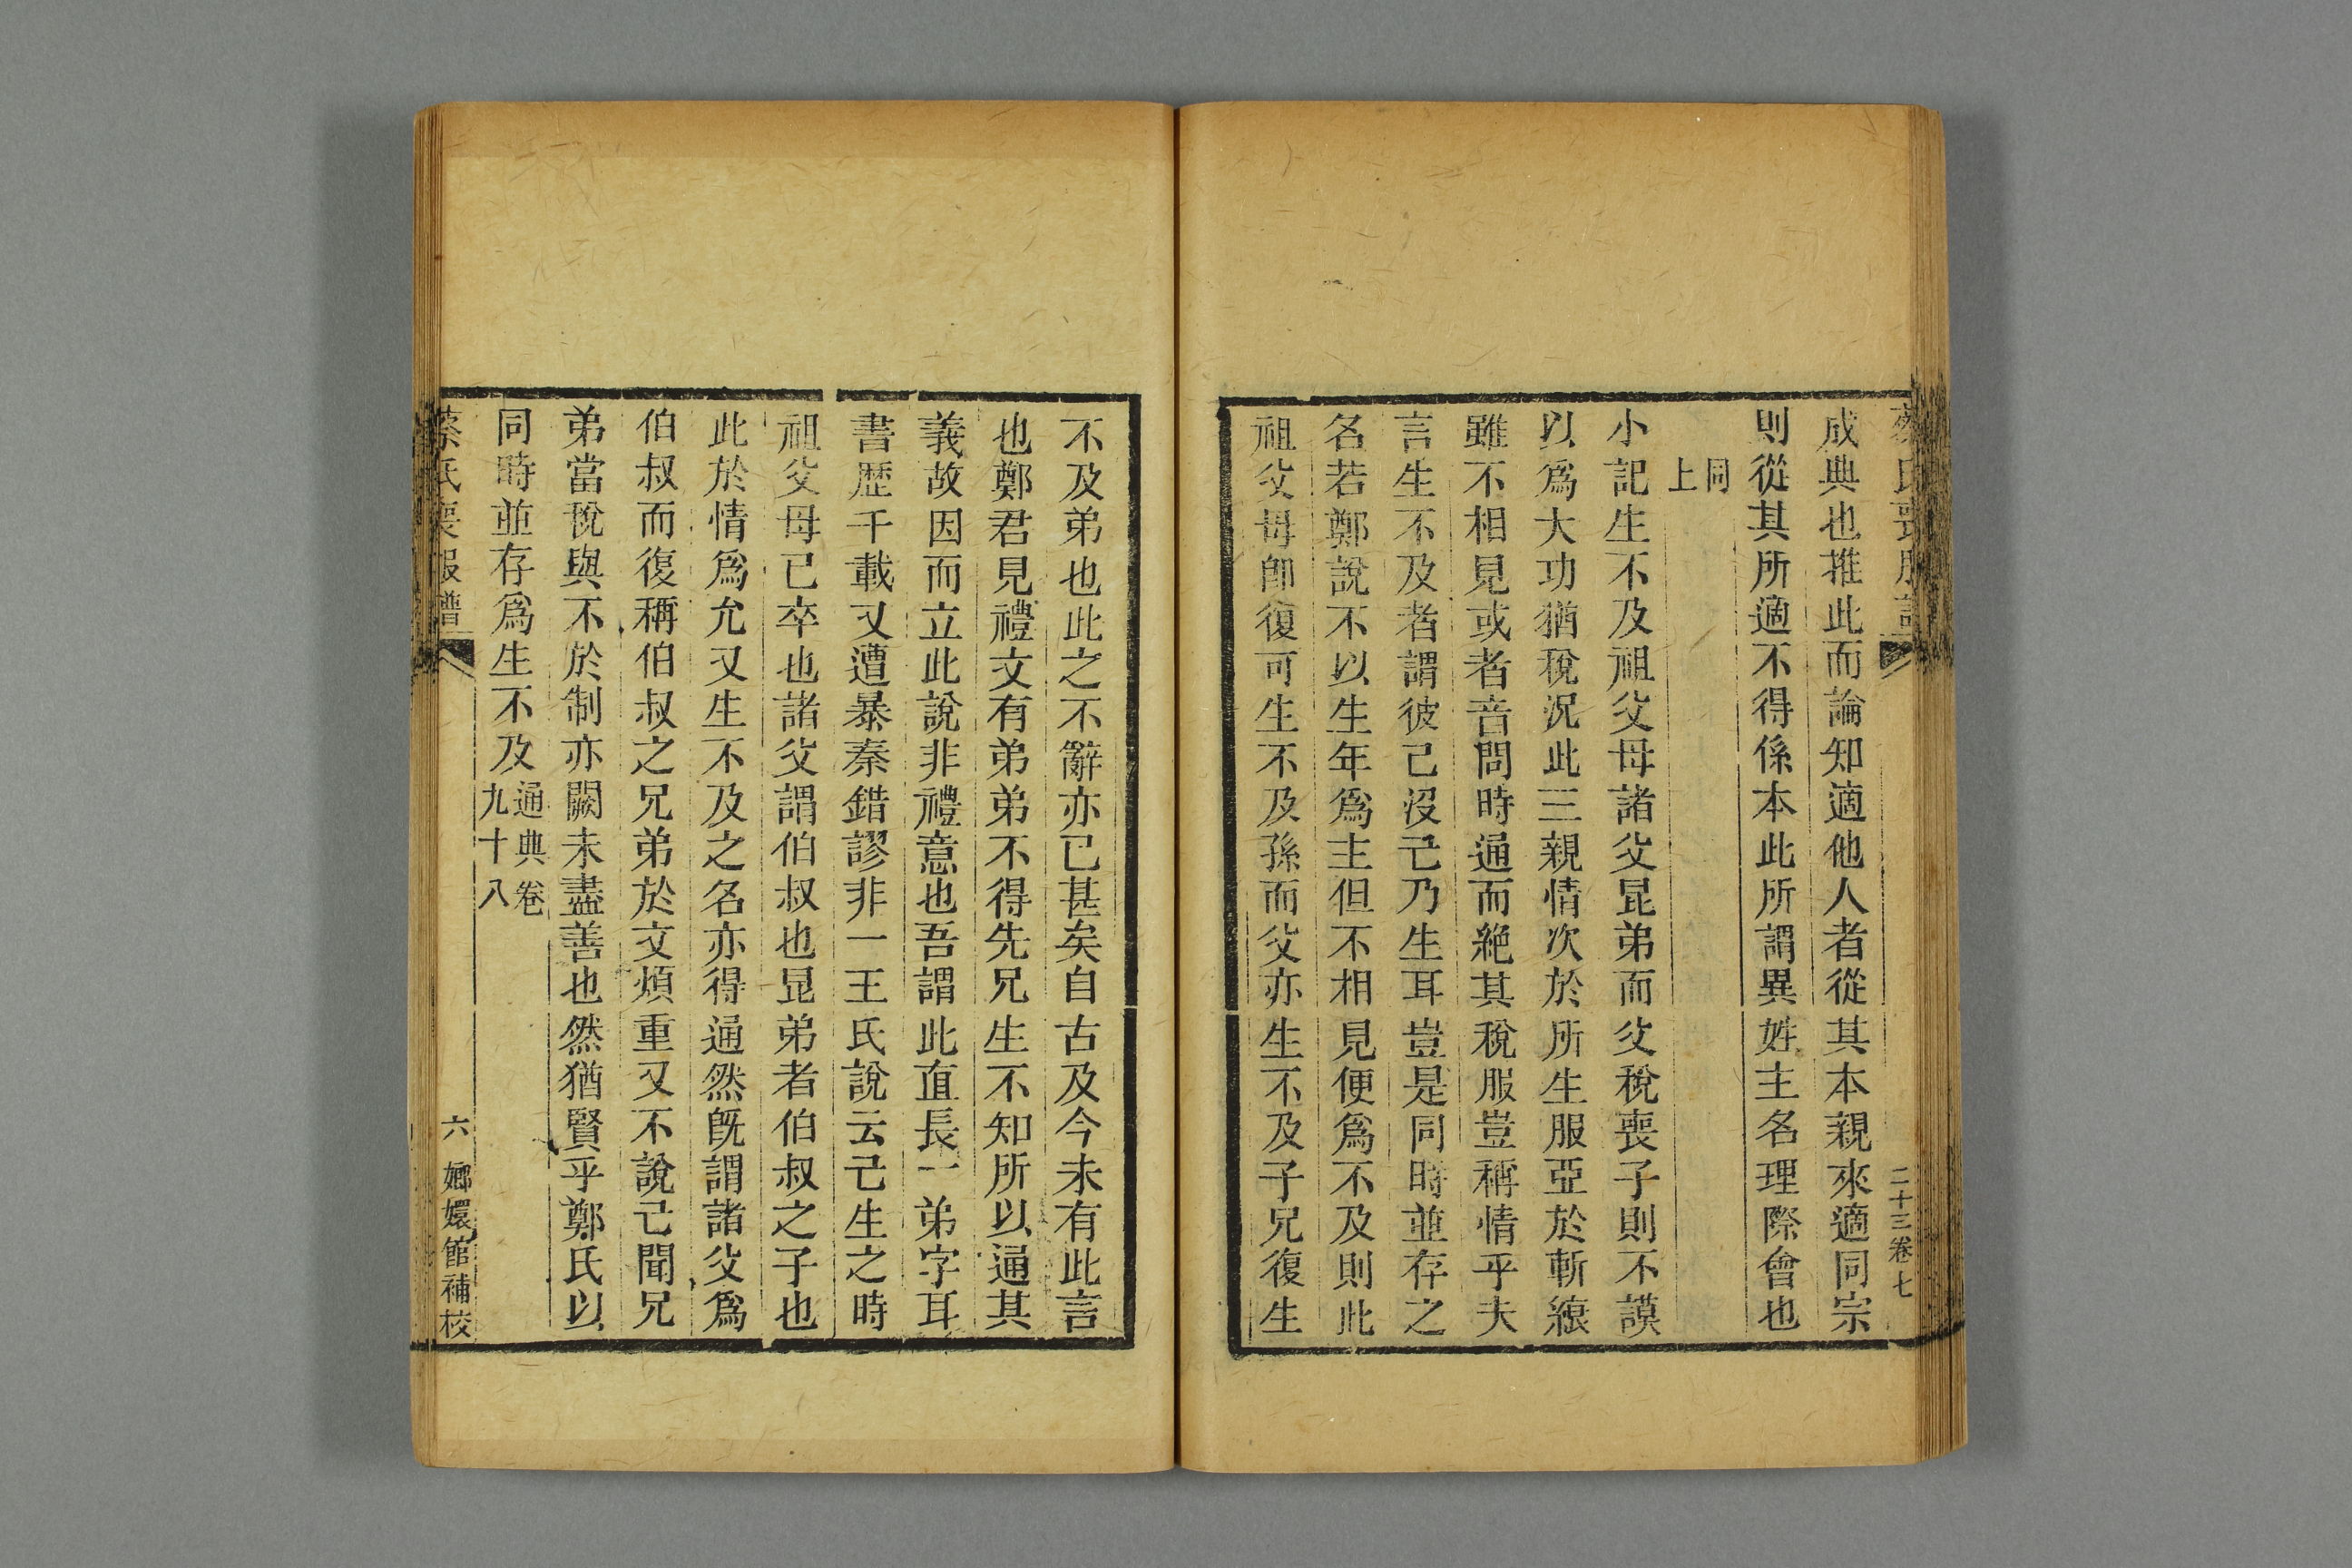 蔡氏喪服譜
二十三卷七
成典也推此而論知適他人者從其本親來適同宗
則從其所適不得係本此所謂異姓主名理際會也
同
上
小記生不及祖父母諸父昆弟而父稅喪子則不謨
以爲大功猶稅況此三親情次於所生服亞於斬縗
雖不相見或者音問時通而絶其稅服豈稱情乎夫
言生不及者謂彼已沒己乃生耳豈是同時並存之
名若鄭說不以生年爲主但不相見便爲不及則此
祖父母卽復可生不及孫而父亦生不及子兄復生
不及弟也此之不辭亦已甚矣自古及今未有此言
也鄭君見禮文有弟弟不得先兄生不知所以通其
義故因而立此說非禮意也吾謂此直長一弟字耳
書歷千載又遭暴秦錯謬非一王氏說云己生之時
祖父母已卒也諸父謂伯叔也昆弟者伯叔之子也
此於情爲允又生不及之名亦得通然旣謂諸父爲
伯叔而復稱伯叔之兄弟於文煩重又不說己聞兄
弟當稅與不於制亦闕未盡善也然猶賢乎鄭氏以
同時並存爲生不及通典卷
九十八
蔡氏喪服譜
六
嫏嬛館補校